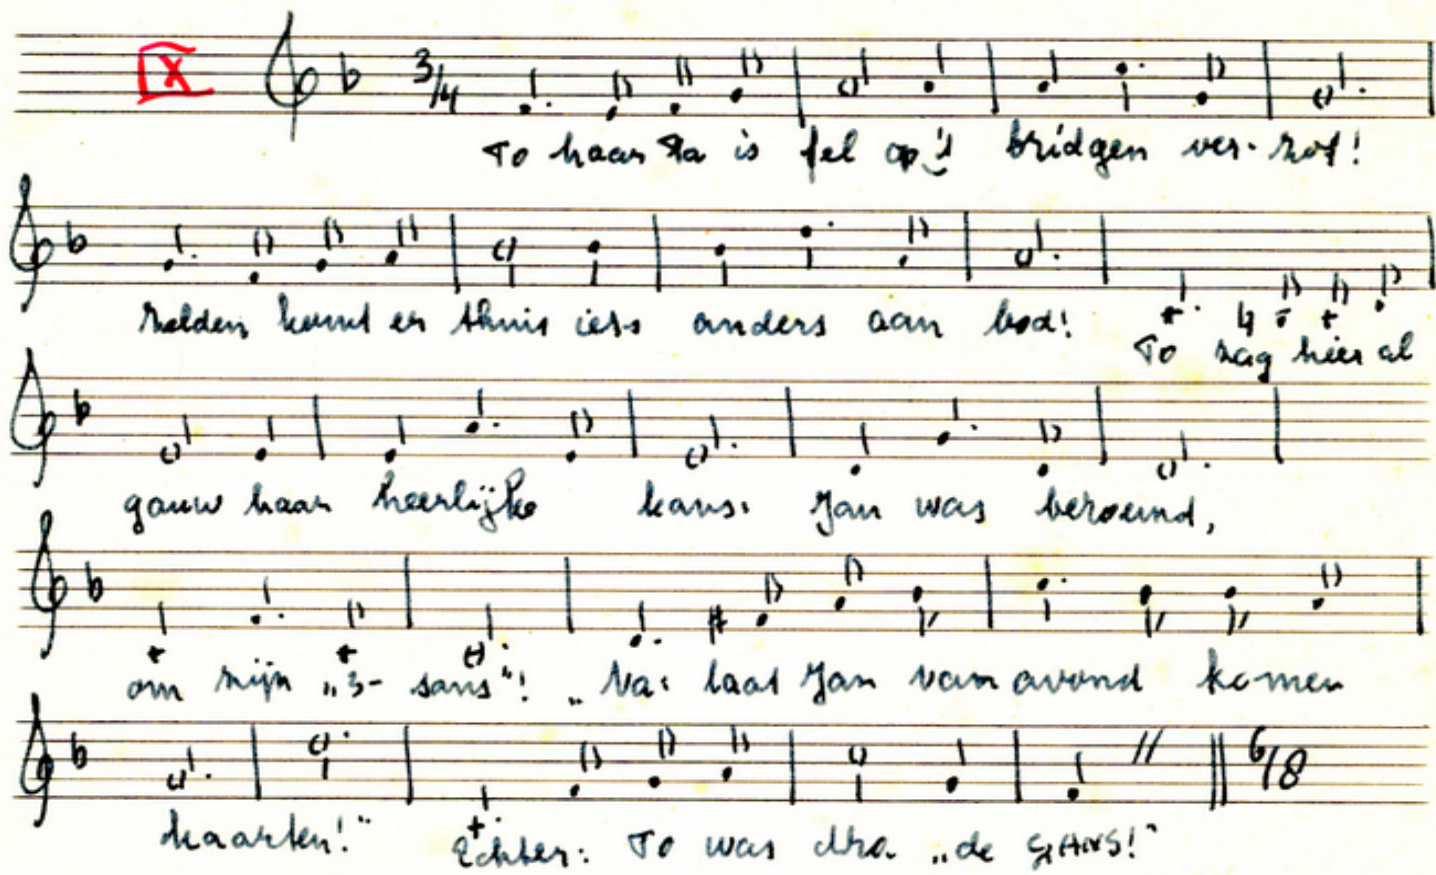 X 3/4
To haar Pa is fel op't bridgen ver-zot!
zelden komt er thuis iets anders aan bod! To zag hier al
gauw haar heerlijke kans: Jan was beroemd,
om zijn „3-sans"! „Pa: laat Jan van avond komen
kaarten!" Echter: To was dra „de GANS!"
6/8